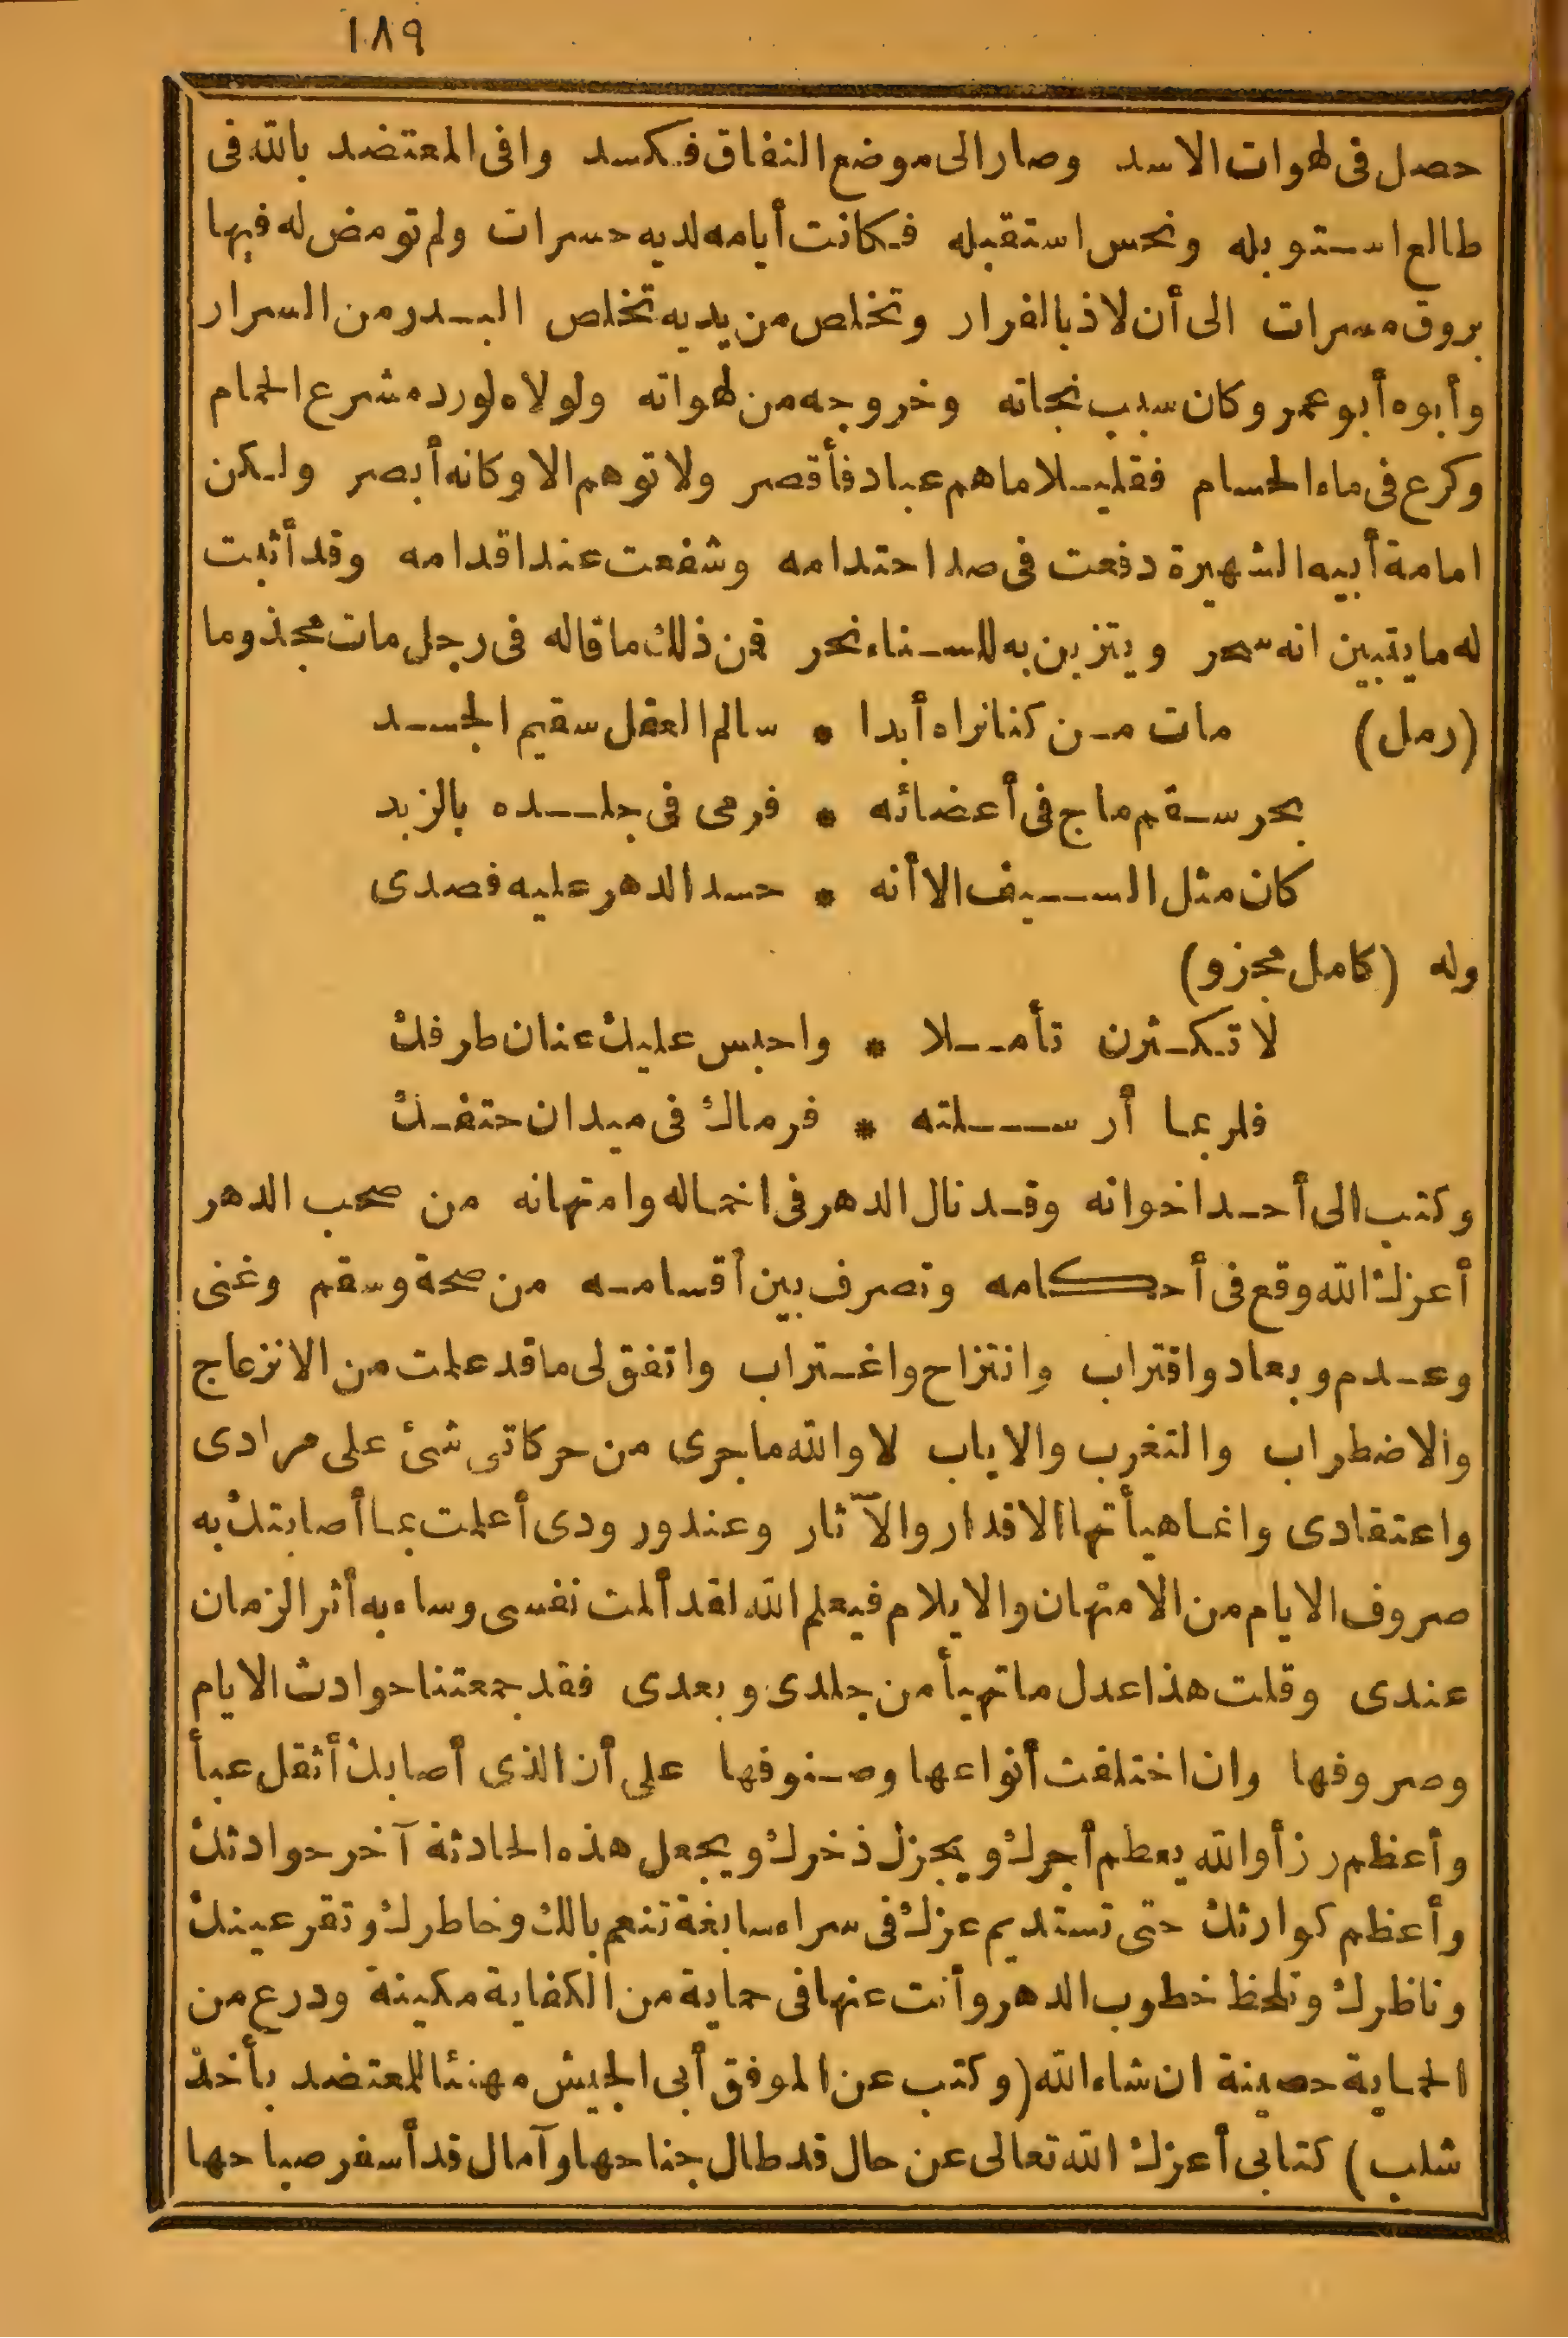 ١٨٩
حصل فى لهوات الاسد وصار الى موضع النفاق فكسد وافى المعتضد بالله فى
طالع استوبله ونحس استقبله فكانت أيامه لديه حسرات ولم تومض له فيها
بروق مسرات الى أن لاذ بالفرار وتخلص من يديه تخلص البدر من السرار
وأبوه أبو عمر وكان سبب نجاته وخروجه من لهواته ولولاه لورد مشرع الحمام
وكرع فى ماء الحسام فقليلا ما هم عباد فأقصر ولا توهم الا وكانه أبصر ولكن
امامة أبيه الشهيرة دفعت فى صد احتدامه وشفعت عند اقدامه وقد أثبت
له ما يتبين انه سحر ويتزين به للسناء نحر فمن ذلك ما قاله فى رجل مات مجذوما
(رمل) مات من كنا نراه أبدا * سالم العقل سقيم الجسد
بحر سقم ماج فى أعضائه * فرمى فى جلده بالزبد
كان مثل السيف الا أنه * حسد الدهر عليه فصدى
وله (كامل مجزو)
لا تكثرن تأملا * واحبس عليك عنان طرفك
فلربما أرسلته * فرماك فى ميدان حتفك
وكتب الى أحد اخوانه وقد نال الدهر فى اخماله وامتهانه من صحب الدهر
أعزك الله وقع فى أحكامه وتصرف بين أقسامه من صحة وسقم وغنى
وعدم وبعاد واقتراب وانتزاح واغتراب واتفق لى ما قد علمت من الانزعاج
والاضطراب والتغرب والاياب لا والله ما جرى من حركاتى شئ على مرادى
واعتقادى وانما هيأتها الاقدار والآثار وعند ورودى أعلمت بما أصابتك به
صروف الايام من الامتهان والايلام فيعلم الله لقد ألمت نفسى وساء به أثر الزمان
عندى وقلت هذا عدل ما تهيأ من جلدى وبعدى فقد جمعتنا حوادث الايام
وصروفها وان اختلفت أنواعها وصنوفها على أن الذى أصابك أثقل عبأ
وأعظم رزأ والله يعظم أجرك ويجزل ذخرك ويجعل هذه الحادثة آخر حوادثك
وأعظم كوارثك حتى تستديم عزك فى سراء سابغة تنعم بالك وخاطرك وتقر عينك
وناظرك وتلحظ خطوب الدهر وأنت عنها فى حماية من الكفاية مكينة ودرع من
الحماية حصينة ان شاء الله (وكتب عن الموفق أبى الجيش مهنئا للمعتضد بأخذ
شلب) كتابى أعزك الله تعالى عن حال قد طال جناحها وآمال قد أسفر صباحها